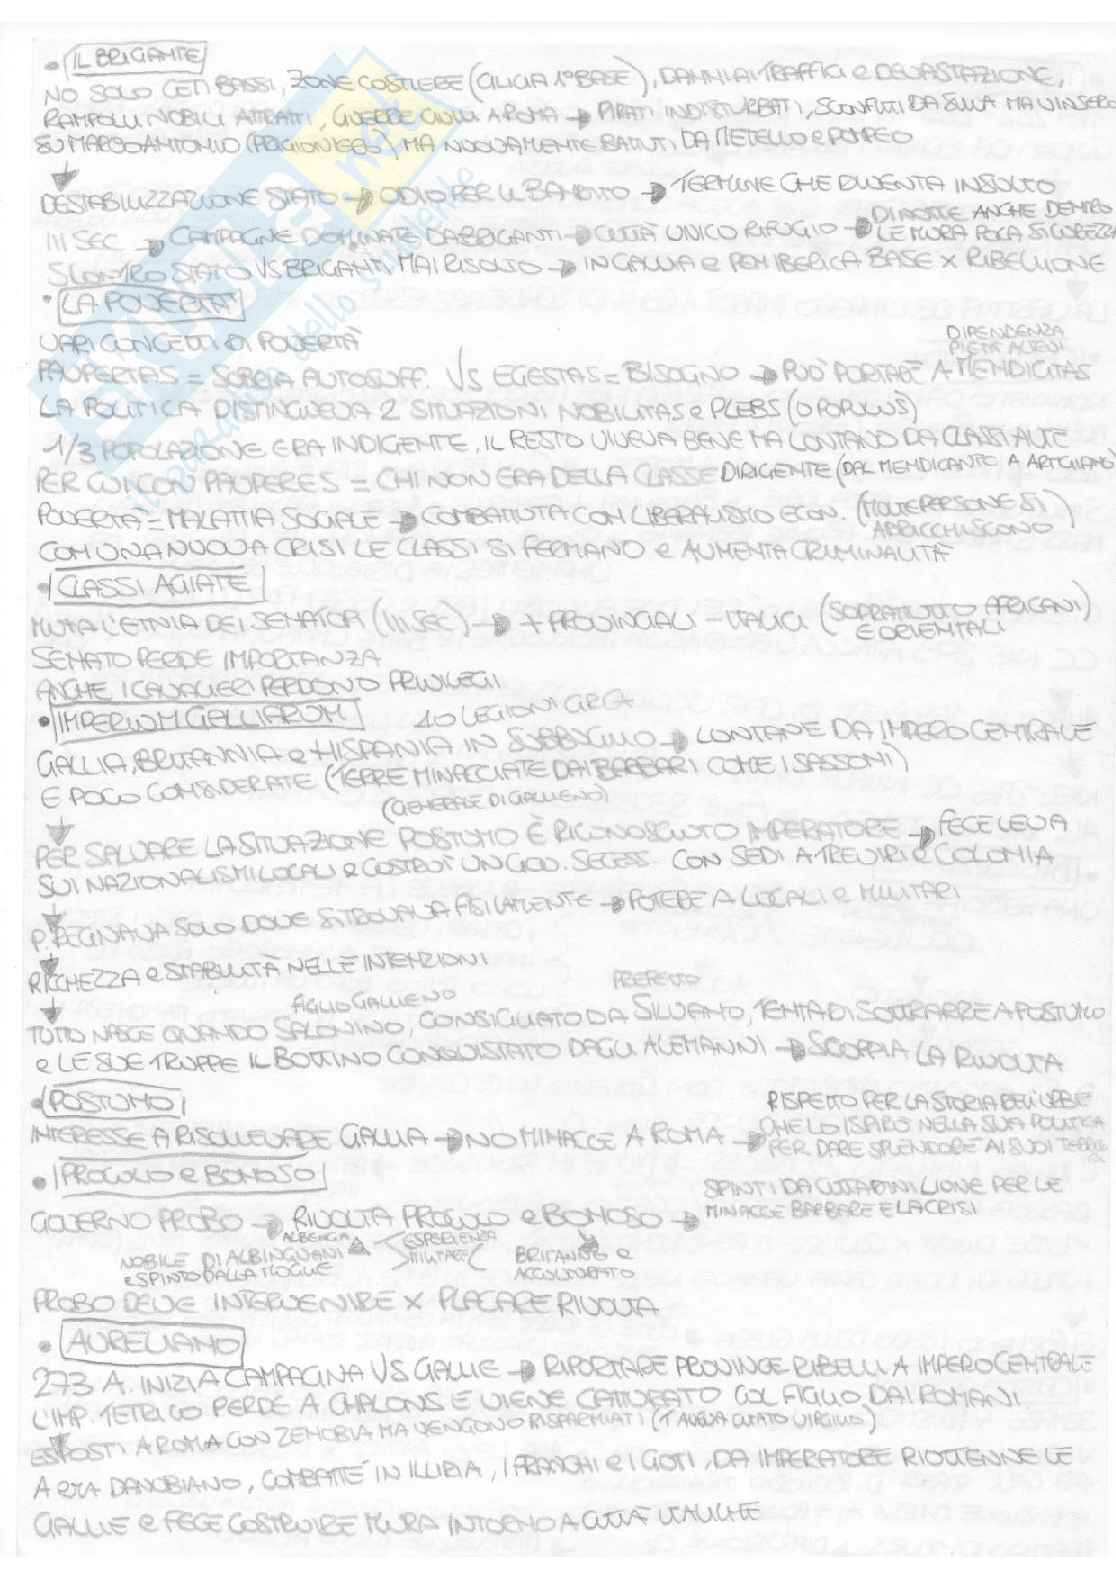 • IL BRIGANTE
NO SOLO CETI BASSI, ZONE COSTIERE (CILICIA 1ª BASE), DANNI AI TRAFFICI e DEVASTAZIONE,
RAMPOLLI NOBILI ATTRATTI, GUERRE CIVILI A ROMA → PIRATI INDISTURBATI, SCONFITTI DA SILLA MA VINSERO
SU MARCO ANTONIO (PRIGIONIERO), MA NUOVAMENTE BATTUTI DA METELLO e POMPEO
↓
DESTABILIZZAZIONE STATO → ODIO PER IL BANDITO → TERMINE CHE DIVENTA INSULTO
III SEC → CAMPAGNE DOMINATE DA BRIGANTI → CITTÀ UNICO RIFUGIO → DI NOTTE ANCHE DENTRO
LE MURA POCA SICUREZZA
SCONTRO STATO VS BRIGANTI MAI RISOLTO → IN GALLIA e PEN. IBERICA BASE X RIBELLIONE
• LA POVERTÀ
VARI CONCETTI DI POVERTÀ
DIPENDENZA
PIETÀ ALTRUI
PAUPERTAS = SOBRIA AUTOSUFF. VS EGESTAS = BISOGNO → PUÒ PORTARE A MENDICITAS
LA POLITICA DISTINGUEVA 2 SITUAZIONI NOBILITAS e PLEBS (O POPULUS)
1/3 POPOLAZIONE ERA INDIGENTE, IL RESTO VIVEVA BENE MA LONTANO DA CLASSI ALTE
PER CUI CON PAUPERES = CHI NON ERA DELLA CLASSE DIRIGENTE (DAL MENDICANTE A ARTIGIANO)
POVERTÀ = MALATTIA SOCIALE → COMBATTUTA CON LIBERALISMO ECON. (MOLTE PERSONE SI
ARRICCHISCONO)
CON UNA NUOVA CRISI LE CLASSI SI FERMANO e AUMENTA CRIMINALITÀ
• CLASSI AGIATE
MUTA L'ETNIA DEI SENATORI (III SEC) → + PROVINCIALI - ITALICI (SOPRATTUTTO AFRICANI
E ORIENTALI)
SENATO PERDE IMPORTANZA
ANCHE I CAVALIERI PERDONO PRIVILEGI
• IMPERIUM GALLIAROM 10 LEGIONI CIRCA
GALLIA, BRITANNIA e HISPANIA IN SUBBUGLIO → LONTANE DA IMPERO CENTRALE
E POCO CONSIDERATE (TERRE MINACCIATE DAI BARBARI COME I SASSONI)
(GENERALE DI GALLIENO)
↓
PER SALVARE LA SITUAZIONE POSTUMO È RICONOSCIUTO IMPERATORE → FECE LEVA
SUI NAZIONALISMI LOCALI e COSTRUÌ UN GOV. SECESS. CON SEDI A TREVIRI e COLONIA
↓
P. REGNAVA SOLO DOVE SI TROVAVA FISICAMENTE → POTERE A LOCALI e MILITARI
↓
RICCHEZZA e STABILITÀ NELLE INTENZIONI
↓
FIGLIO GALLIENO PREFETTO
TUTTO NASCE QUANDO SALONINO, CONSIGLIATO DA SILVANO, TENTA DI SOTTRARRE A POSTUMO
e LE SUE TRUPPE IL BOTTINO CONQUISTATO DAGLI ALEMANNI → SCOPPIA LA RIVOLTA
• POSTUMO
INTERESSE A RISOLLEVARE GALLIA → NO MINACCE A ROMA → RISPETTO PER LA STORIA DELL'URBE
CHE LO ISPIRÒ NELLA SUA POLITICA
PER DARE SPLENDORE AI SUOI
• PROCULO e BONOSO
GOVERNO PROBO → RIVOLTA PROCULO e BONOSO → SPINTI DA CITTADINI LIONE PER LE
MINACCE BARBARE E LA CRISI
ALBENGA ESPERIENZA
MILITARE
NOBILE DI ALBINGUANI
e SPINTO DALLA MOGLIE
BRITANNO e
ACCULTURATO
PROBO DEVE INTERVENIRE X PLACARE RIVOLTA
• AURELIANO
273 A. INIZIA CAMPAGNA VS GALLIE → RIPORTARE PROVINCE RIBELLI A IMPERO CENTRALE
L'IMP. TETRICO PERDE A CHALONS E VIENE CATTURATO COL FIGLIO DAI ROMANI.
ESPOSTI A ROMA CON ZENOBIA MA VENGONO RISPARMIATI (T AVEVA CITATO VIRGILIO)
A ERA DANUBIANO, COMBATTÉ IN ILLIRIA, I FRANCHI e I GOTI, DA IMPERATORE RIOTTENNE LE
GALLIE e FECE COSTRUIRE MURA INTORNO A CITTÀ ITALICHE